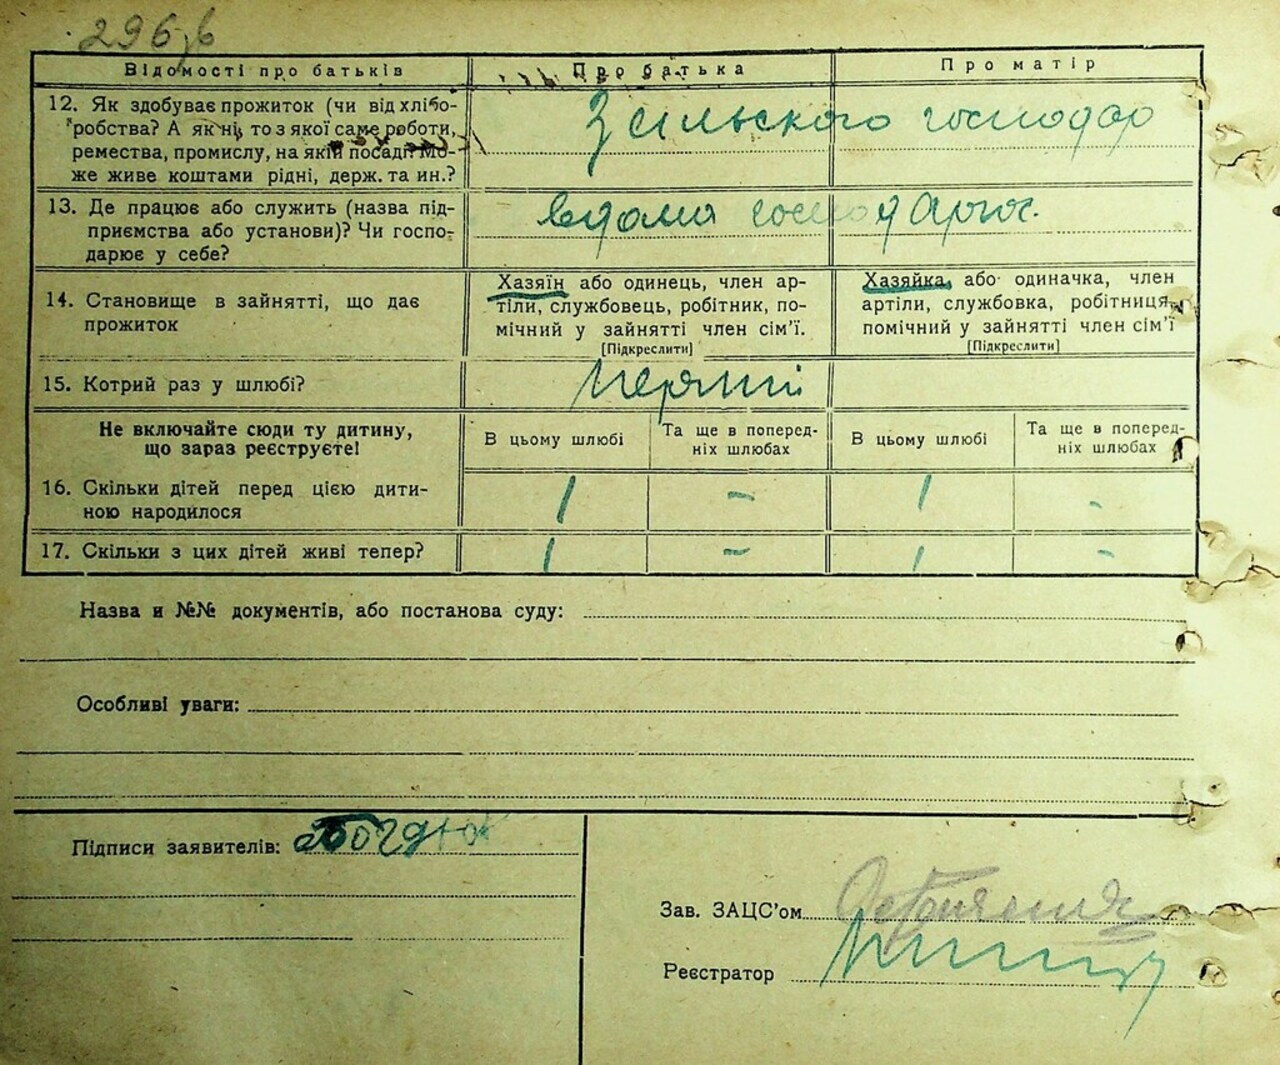 296 зв
Відомості про батьків
Про батька
Про матір
12. Як здобуває прожиток (чи від хлібо-
робства? А як ні, то з якої саме роботи,
ремества, промислу, на якій посаді? Мо-
же живе коштами рідні, держ. та ин.?
З сільского господар
13. Де працює або служить (назва під-
приємства або установи)? Чи госпо-
дарює у себе?
вдома господарює.
14. Становище в зайнятті, що дає
прожиток
Хазяїн або одинець, член ар-
тіли, службовець, робітник, по-
мічний у зайнятті член сім'ї.
[Підкреслити]
Хазяйка, або одиначка, член
артіли, службовка, робітниця,
помічний у зайнятті член сім'ї
[Підкреслити]
15. Котрий раз у шлюбі?
перший
Не включайте сюди ту дитину,
що зараз реєструєте!
В цьому шлюбі
Та ще в поперед-
ніх шлюбах
В цьому шлюбі
Та ще в поперед-
ніх шлюбах
16. Скільки дітей перед цією дити-
ною народилося
1 - 1 -
17. Скільки з цих дітей живі тепер?
1 - 1 -
Назва и №№ документів, або постанова суду:
Особливі уваги:
Підписи заявителів:
Зав. ЗАЦС'ом
Реєстратор